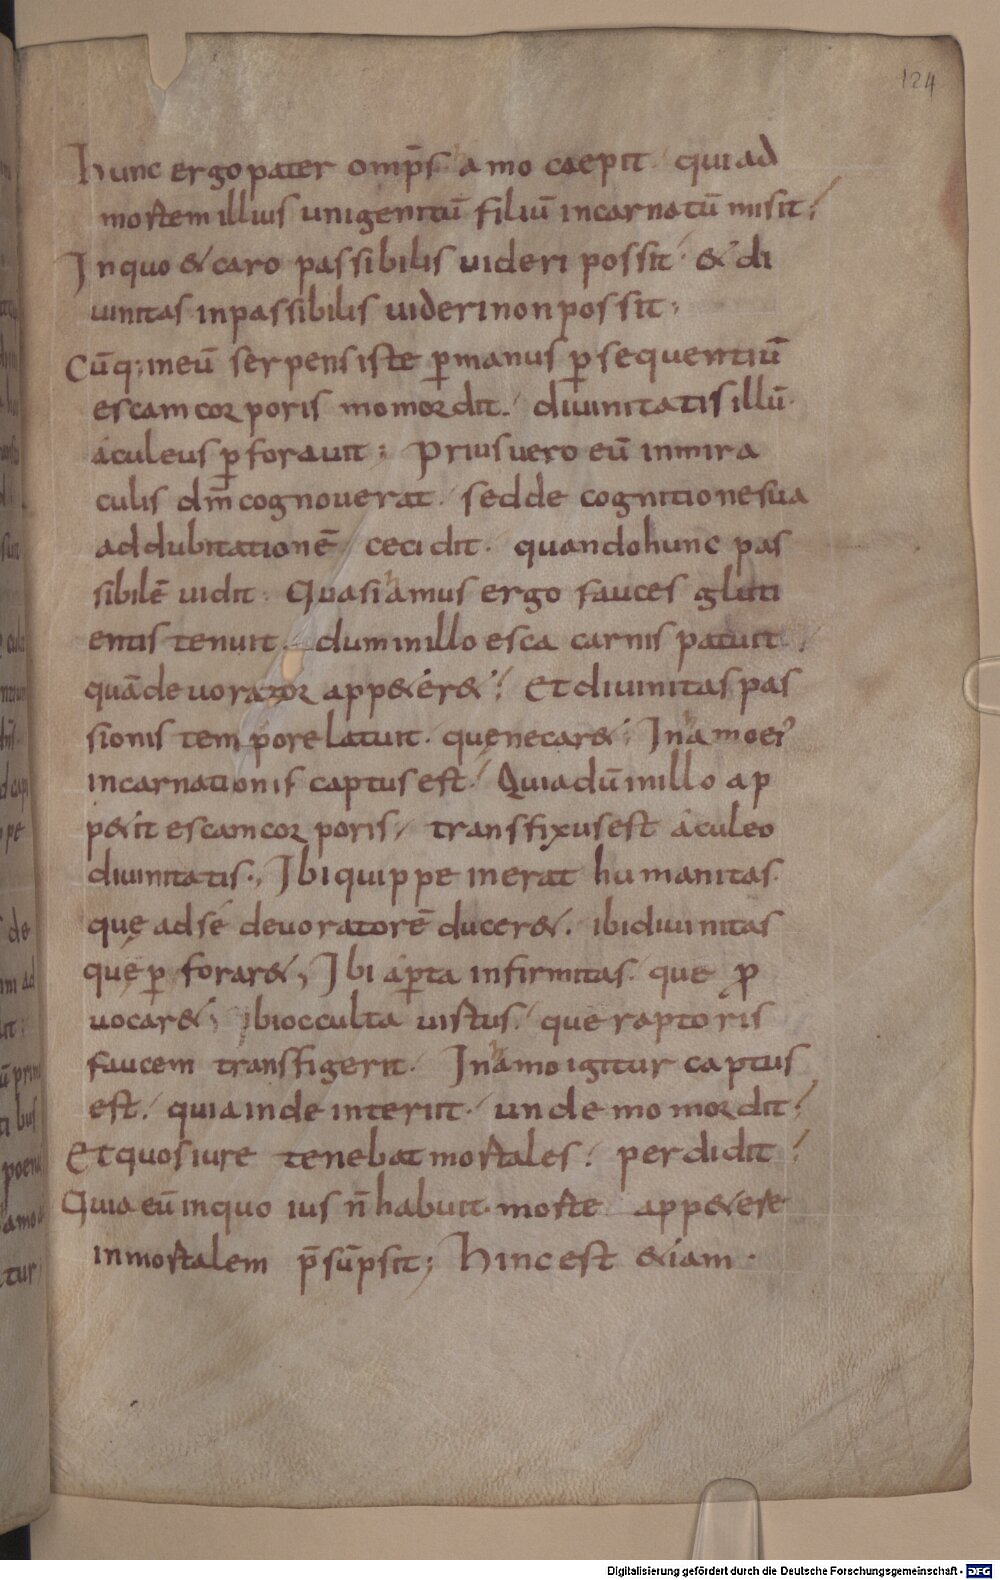 124
hunc ergo pater omp̄s hamo caepit qui ad
mortem illius unigenitū filiū incarnatū misit;
In quo & caro passibilis uideri possit· & di
uinitas inpassibilis uideri non possit;
Cūq; in eū serpens iste ꝑ manus ꝑsequentiū
escam corporis momordit· diuinitatis illū·
aculeus ꝑforauit; Prius uero eū in mira
culis dm̄ cognouerat· sed de cognitione sua
ad dubitationē cecidit· quando hunc pas
sibilē uidit· Quasi hamus ergo fauces gluti
entis tenuit· dum in illo esca carnis patuit·
quā deuorator app&er&; Et diuinitas pas
sionis tempore latuit· quę necar&; In hamo ei᾿
incarnationis captus est· Quia dū in illo ap
p&it escam corporis· transfixus est aculeo
diuinitatis·, Ibi quippe inerat humanitas·
quę ad sé deuoratorē ducer&· ibi diuinitas
quę ꝑforar&, Ibi aꝑta infirmitas· que ꝓ
uocar&; ibi occulta uirtus· que raptoris
faucem transfigerit· In hamo igitur captus
est· quia inde interiit· unde momordit;
Et quos iure tenebat mortales· perdidit·
Quia eū in quo ius n̄ habuit· morte app&ere
inmortalem p̄sūpsit; Hinc est &iam·
Digitalisierung gefördert durch die Deutsche Forschungsgemeinschaft - DFG